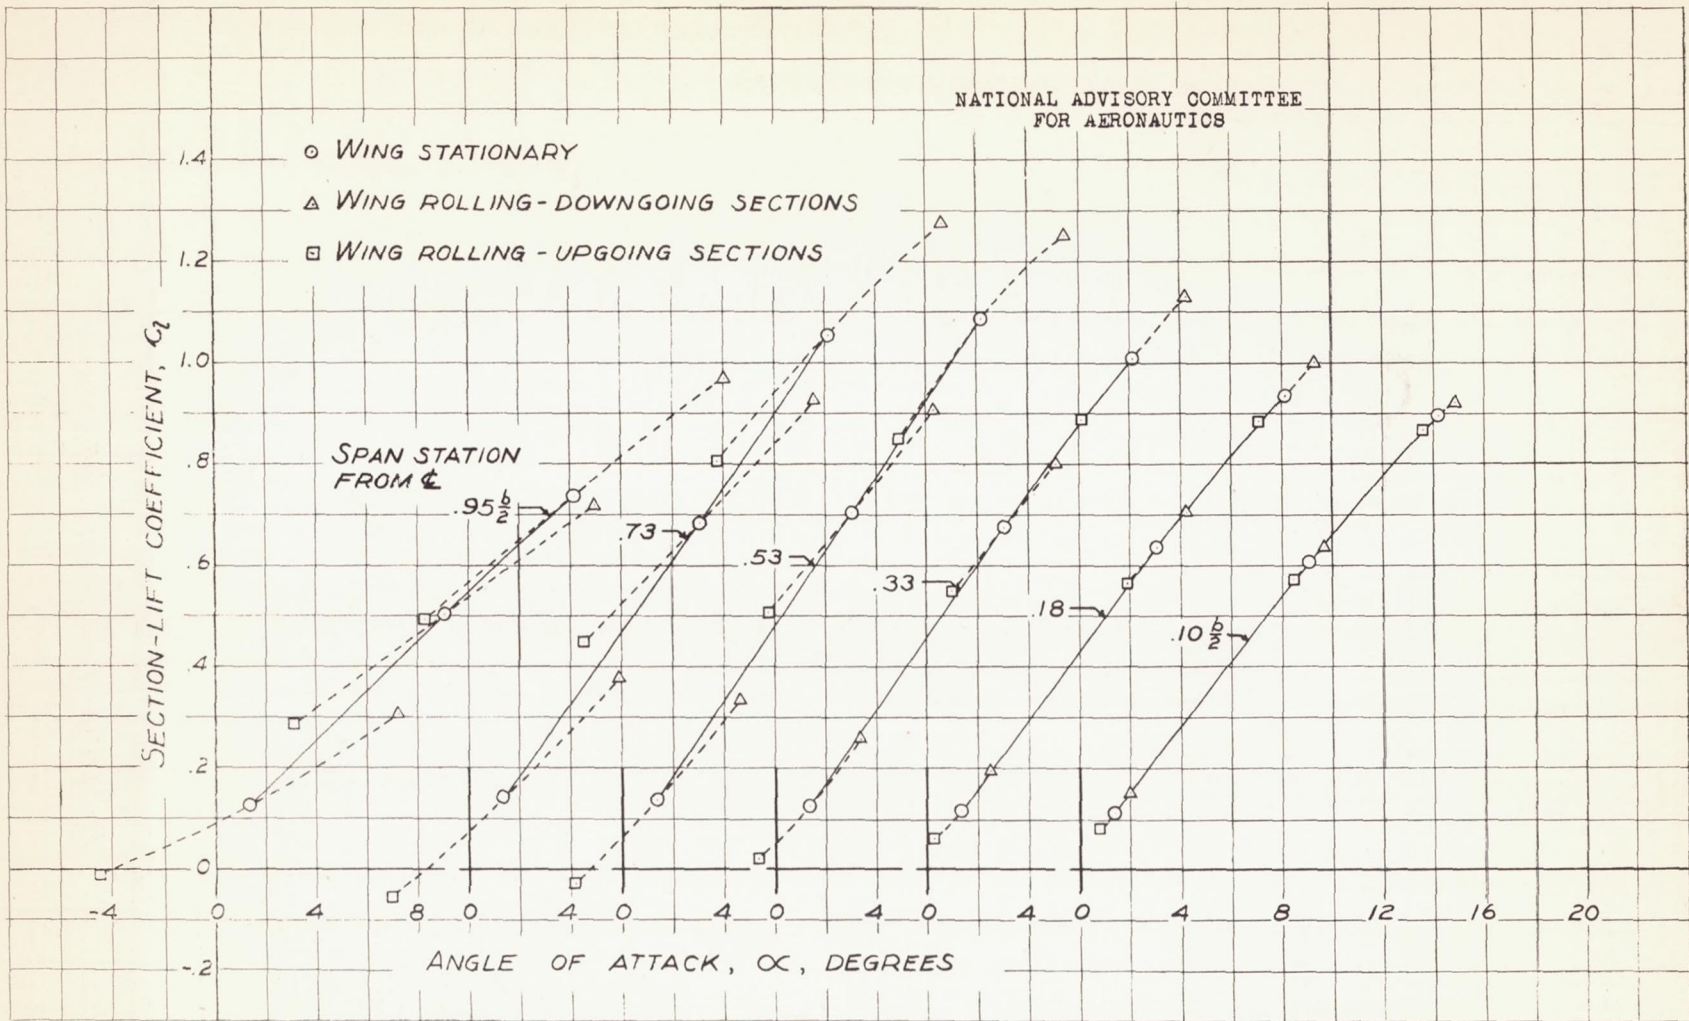 NATIONAL ADVISORY COMMITTEE
FOR AERONAUTICS
⊙ WING STATIONARY
△ WING ROLLING-DOWNGOING SECTIONS
⊡ WING ROLLING-UPGOING SECTIONS
1.4
1.2
1.0
.8
.6
.4
.2
0
-.2
SECTION-LIFT COEFFICIENT, Cl
SPAN STATION
FROM ℄
.95 b/2
.73
.53
.33
.18
.10 b/2
-4 0 4 8 0 4 0 4 0 4 0 4 0 4 8 12 16 20
ANGLE OF ATTACK, ∝, DEGREES